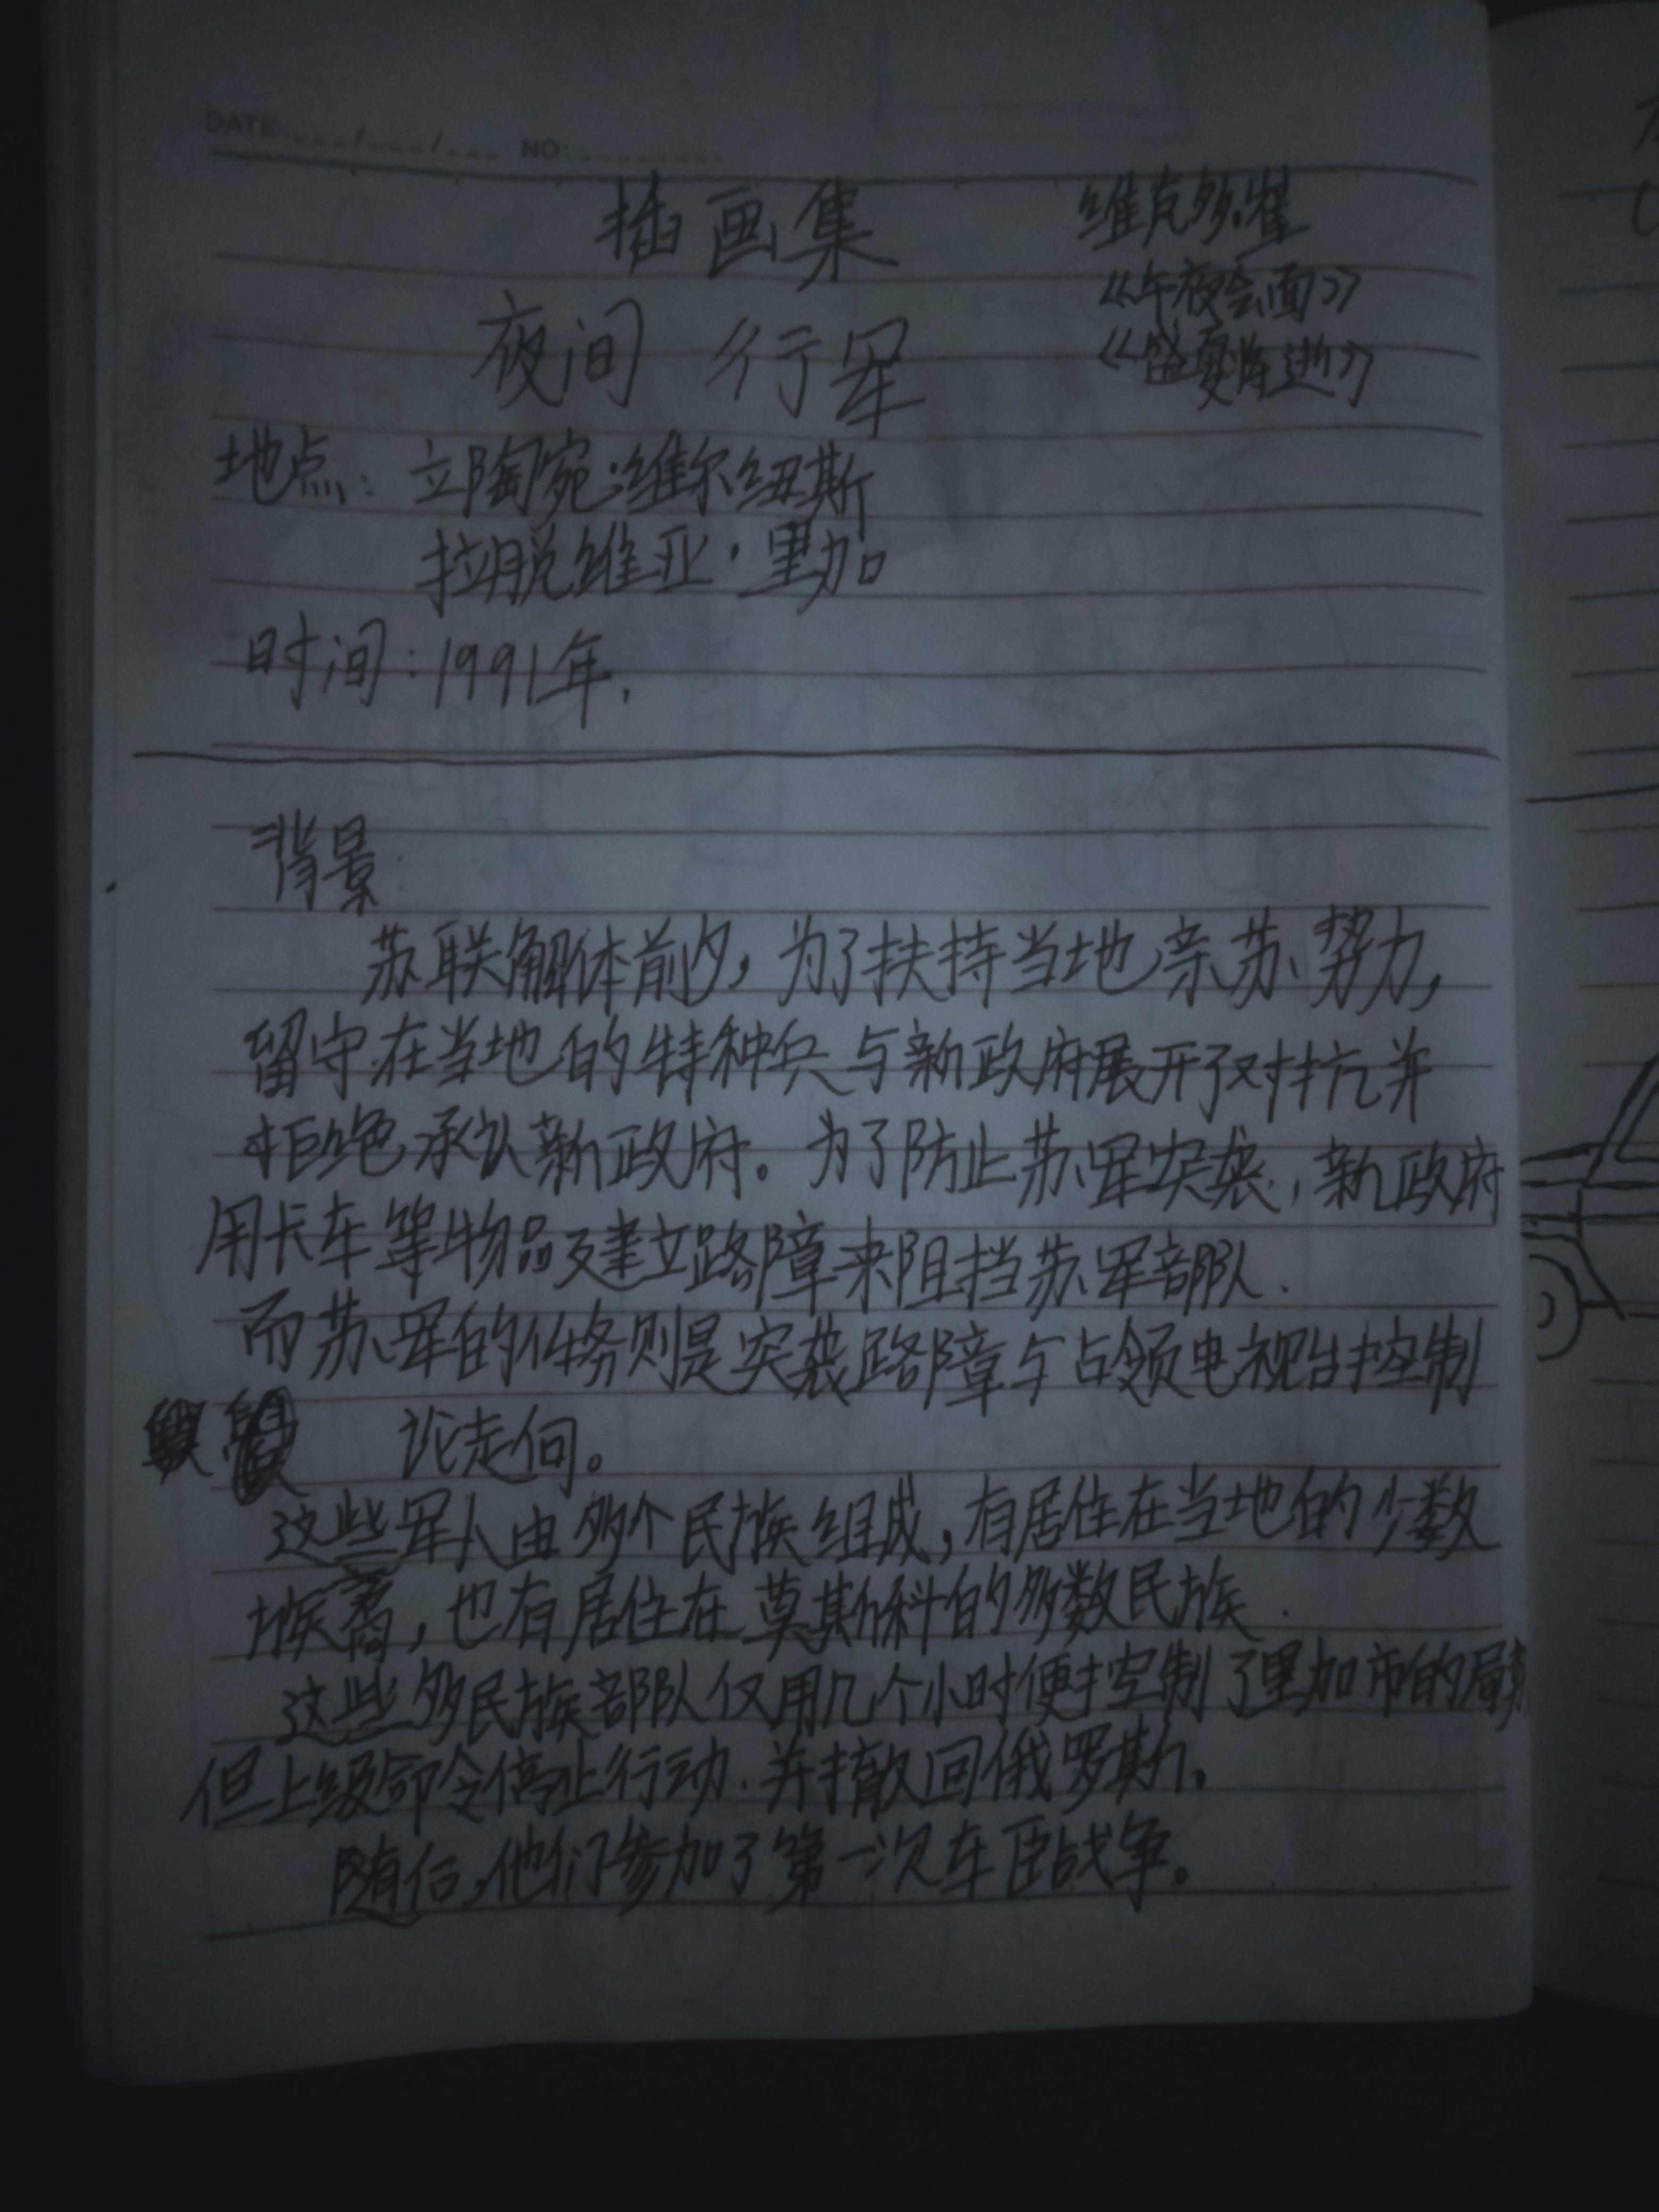 DATE: ___/___/___ NO: ________
插画集
维克多·崔
《午夜会面》
夜间 行军
《盛夏阵逝》
地点: 立陶宛·维尔纽斯
拉脱维亚·里加
时间:1991年.
背景
苏联解体前夕,为了扶持当地亲苏势力,
留守在当地的特种兵与新政府展开了对抗并
拒绝承认新政府。为了防止苏军突袭,新政府
用卡车等物品建立路障来阻挡苏军部队.
而苏军的任务则是突袭路障与占领电视台控制
论走向。
这些军人由多个民族组成,有居住在当地的少数
族裔,也有居住在莫斯科的多数民族.
这些多民族部队仅用几个小时便控制了里加市的局势
但上级命令停止行动.并撤回俄罗斯。
随后,他们参加了第一次车臣战争。